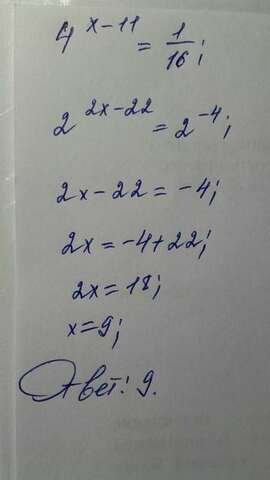 4^{x-11} = 1/16;
2^{2x-22} = 2^{-4};
2x-22 = -4;
2x = -4+22;
2x = 18;
x = 9;
Ответ: 9.